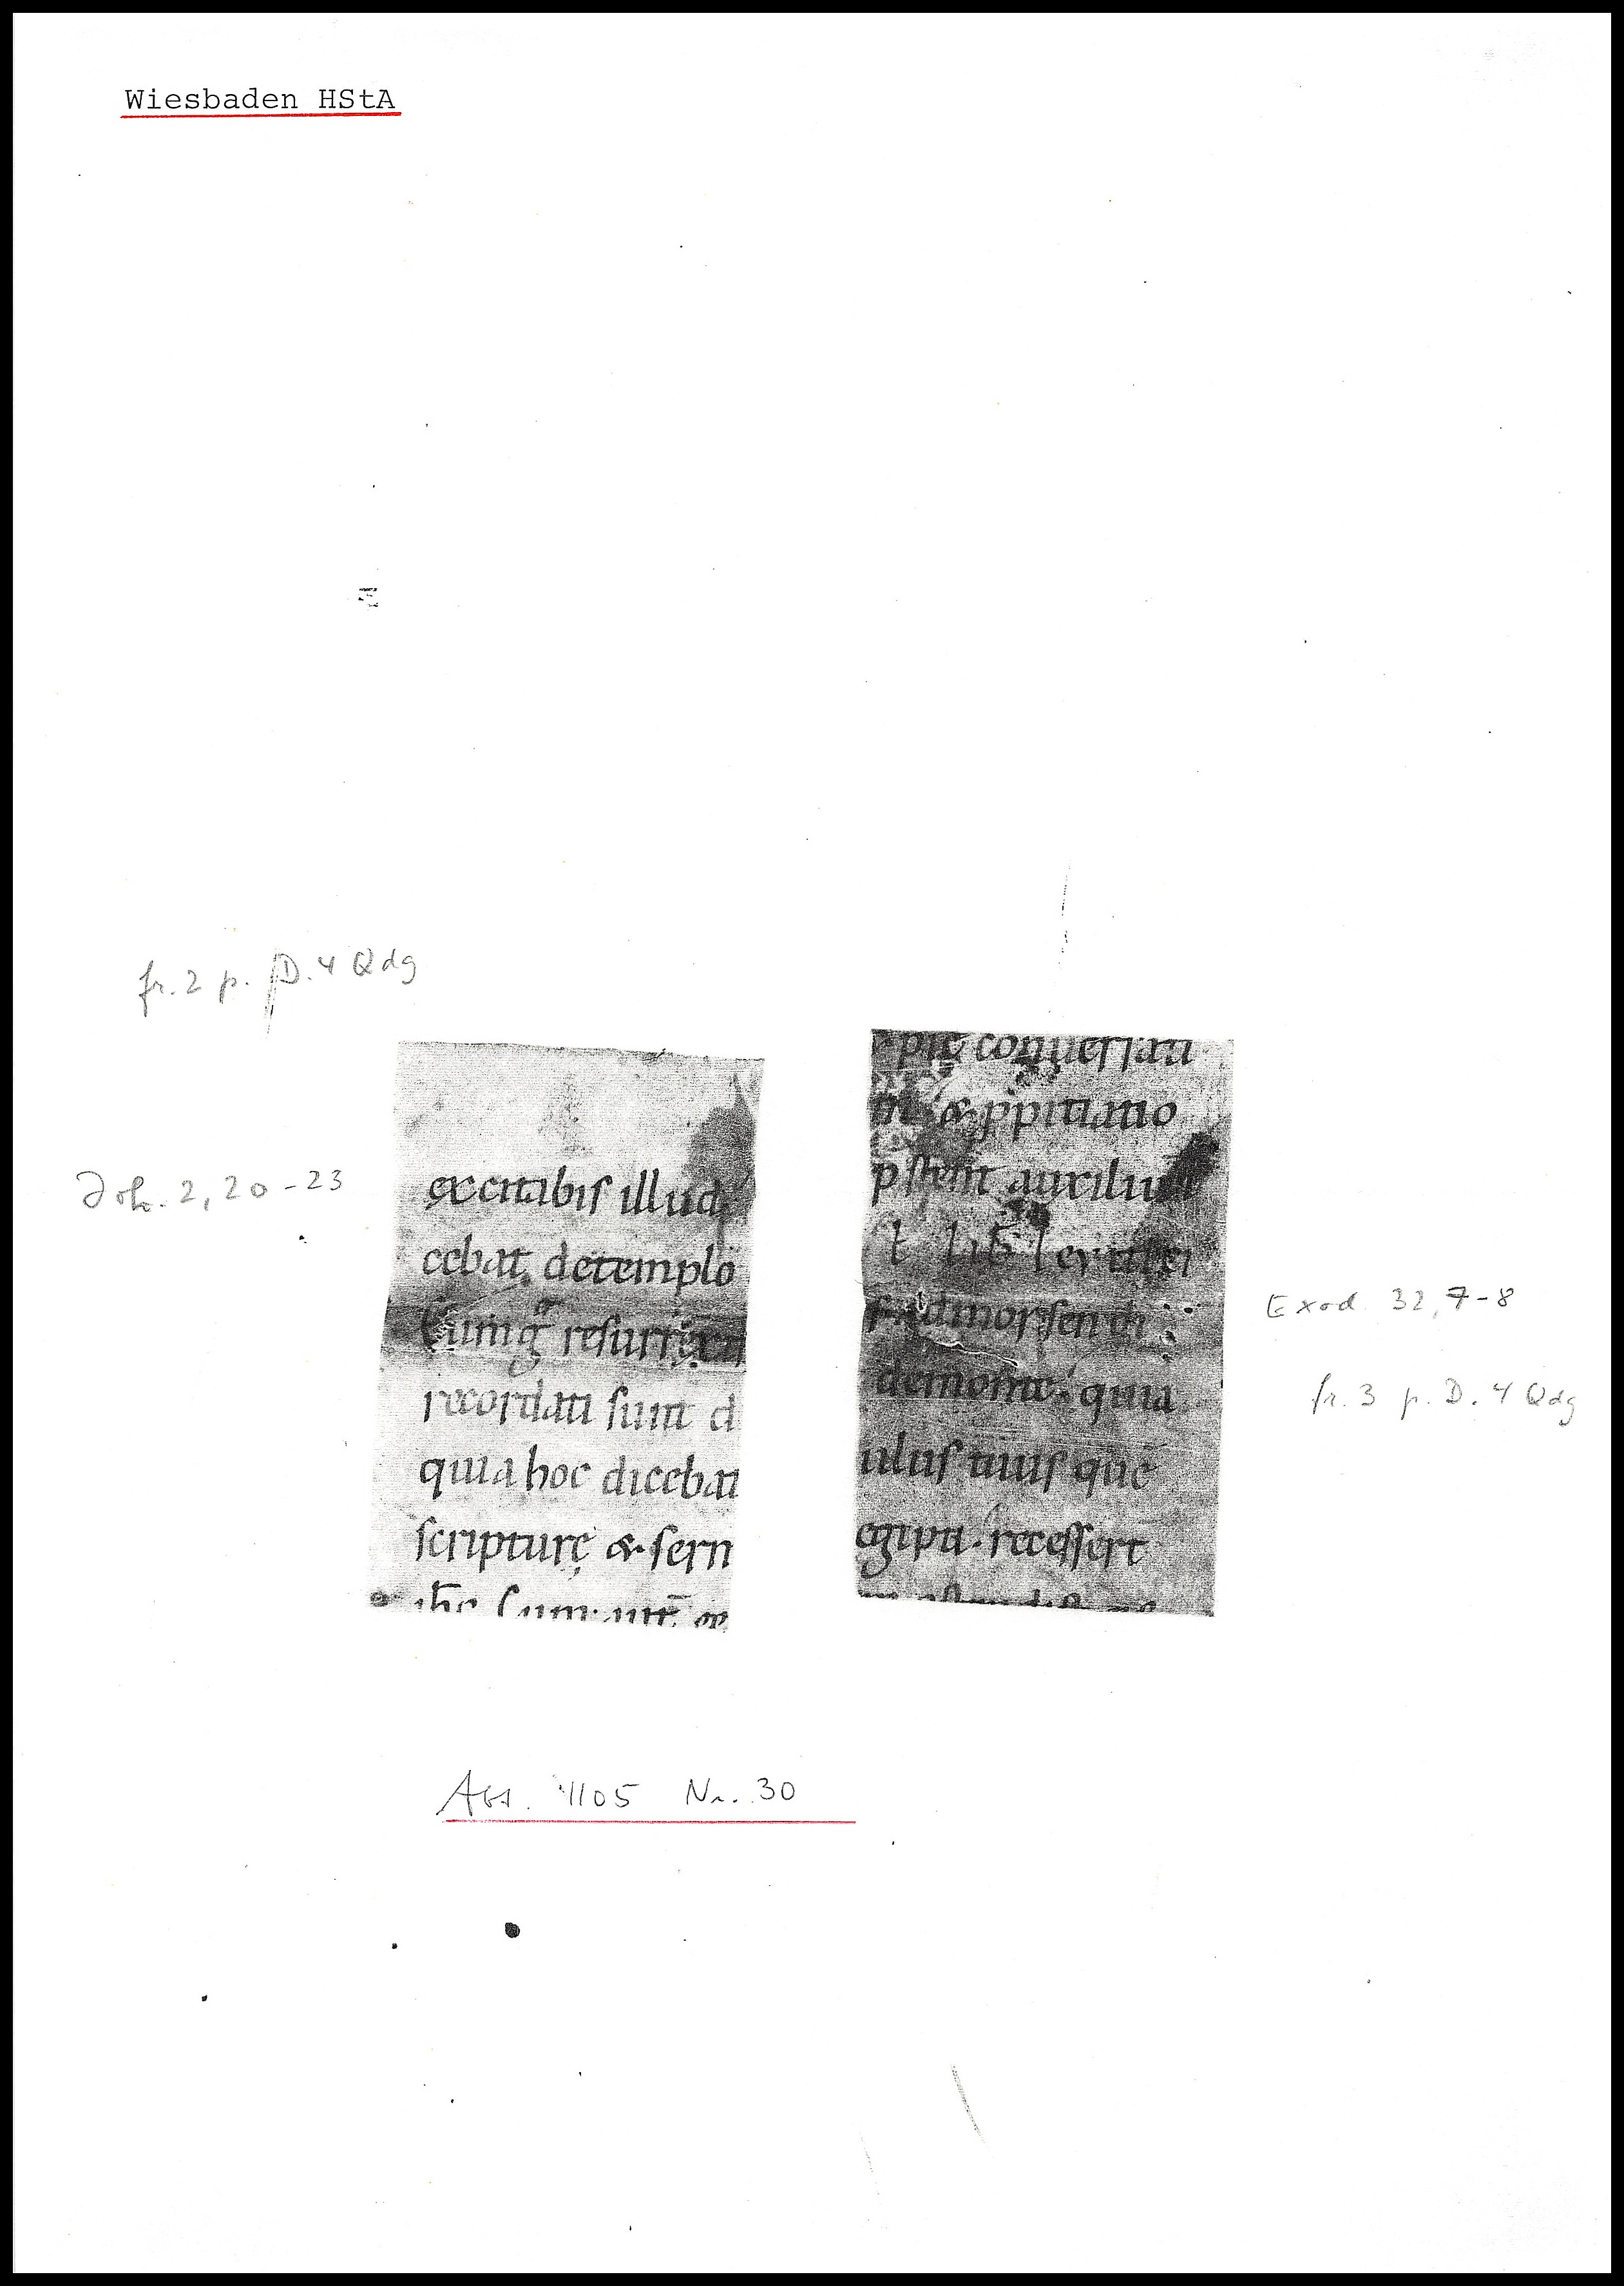 Wiesbaden HStA
fr. 2 p. D. 4 Qdg
Joh. 2, 20-23
excitabis illud
cebat detemplo
Cumq̅ resurrex
recordati sunt d
quia hoc dicebat
scripturę & serm
ihc̅ Cum aut̅ ee
pie conuersati
& ppitiatio
auxiliu
t lib̅ leuitici
demonte. quia
ulus tuus que̅
egipti. recesser̅t
Exod. 32, 7-8
fr. 3 p. D. 4 Qdg
Abt. 1105 Nr. 30